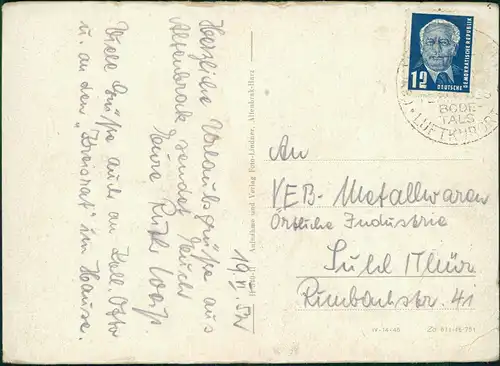 19. VI. 52
Herzliche Urlaubsgrüße aus
Altenbrak sendet Euch
Eure Ruth
Viele Grüße auch an Koll. Otto
u. an den „Kreisrat" im Hause.
Aufnahme und Verlag Foto-Lindner, Altenbrak-Harz
12
DEUTSCHE
DEMOKRATISCHE REPUBLIK
BODE-
TALS
LUFTKURORT
An
VEB-Metallwaren
Örtliche Industrie
Suhl Thür
Rimbachstr. 41